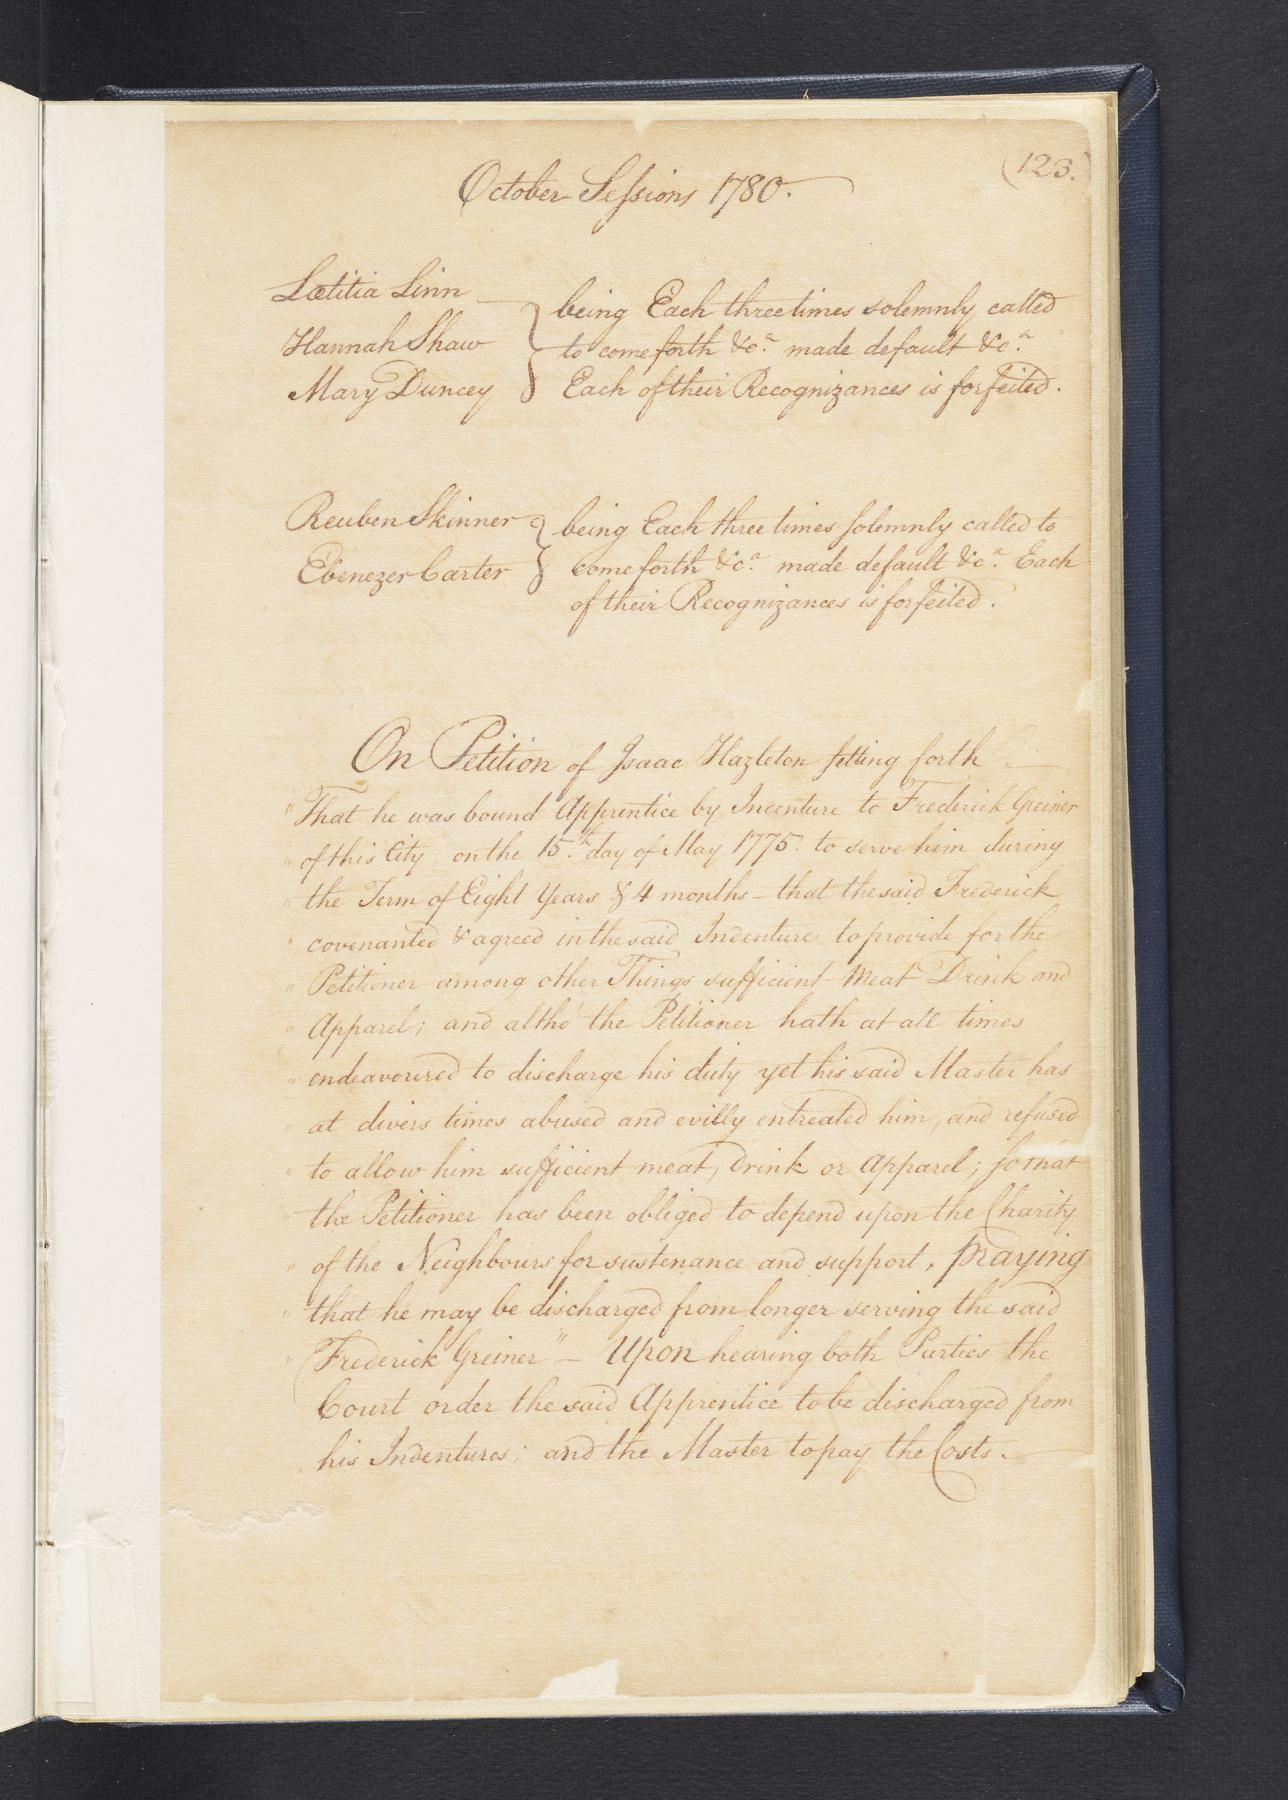 (123.)
October Sessions 1780.
Lætitia Linn
Hannah Shaw
Mary Duncey
being Each three times solemnly called
to come forth &c.a made default &c.a
Each of their Recognizances is forfeited.
Reuben Skinner
Ebenezer Carter
being Each three times solemnly called to
come forth &c.a made default &c.a Each
of their Recognizances is forfeited.
On Petition of Isaac Hazleton setting forth
"That he was bound Apprentice by Indenture to Frederick Greiner
" of this City, on the 15.th day of May 1775. to serve him during
" the Term of Eight Years & 4 months - that the said Frederick
" covenanted & agreed in the said Indenture to provide for the
" Petitioner among other Things sufficient Meat Drink and
" Apparel; and altho' the Petitioner hath at all times
" endeavoured to discharge his duty yet his said Master has
" at divers times abused and evilly entreated him, and refused
" to allow him sufficient meat, drink or Apparel; so that
" the Petitioner has been obliged to depend upon the Charity
" of the Neighbours for sustenance and support, praying
" that he may be discharged from longer serving the said
" Frederick Greiner" - Upon hearing both Parties the
Court order the said Apprentice to be discharged from
his Indentures; and the Master to pay the Costs.